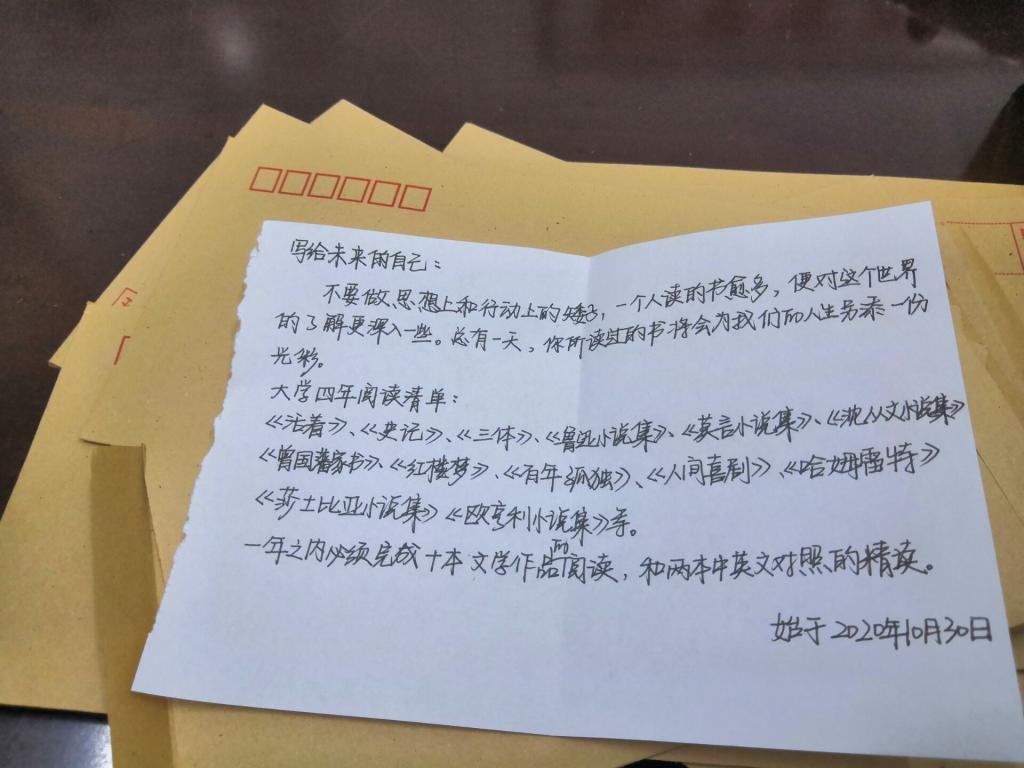 写给未来的自己：
不要做思想上和行动上的矮子，一个人读的书愈多，便对这个世界
的了解更深入一些。总有一天，你所读过的书将会为我们的人生另添一份
光彩。
大学四年阅读清单：
《活着》、《史记》、《三体》、《鲁迅小说集》、《莫言小说集》、《沈从文小说集》
《曾国藩家书》、《红楼梦》、《百年孤独》、《人间喜剧》、《哈姆雷特》
《莎士比亚小说集》《欧亨利小说集》等。
一年之内必须完成十本文学作品的阅读，和两本中英文对照的精读。
始于2020年10月30日